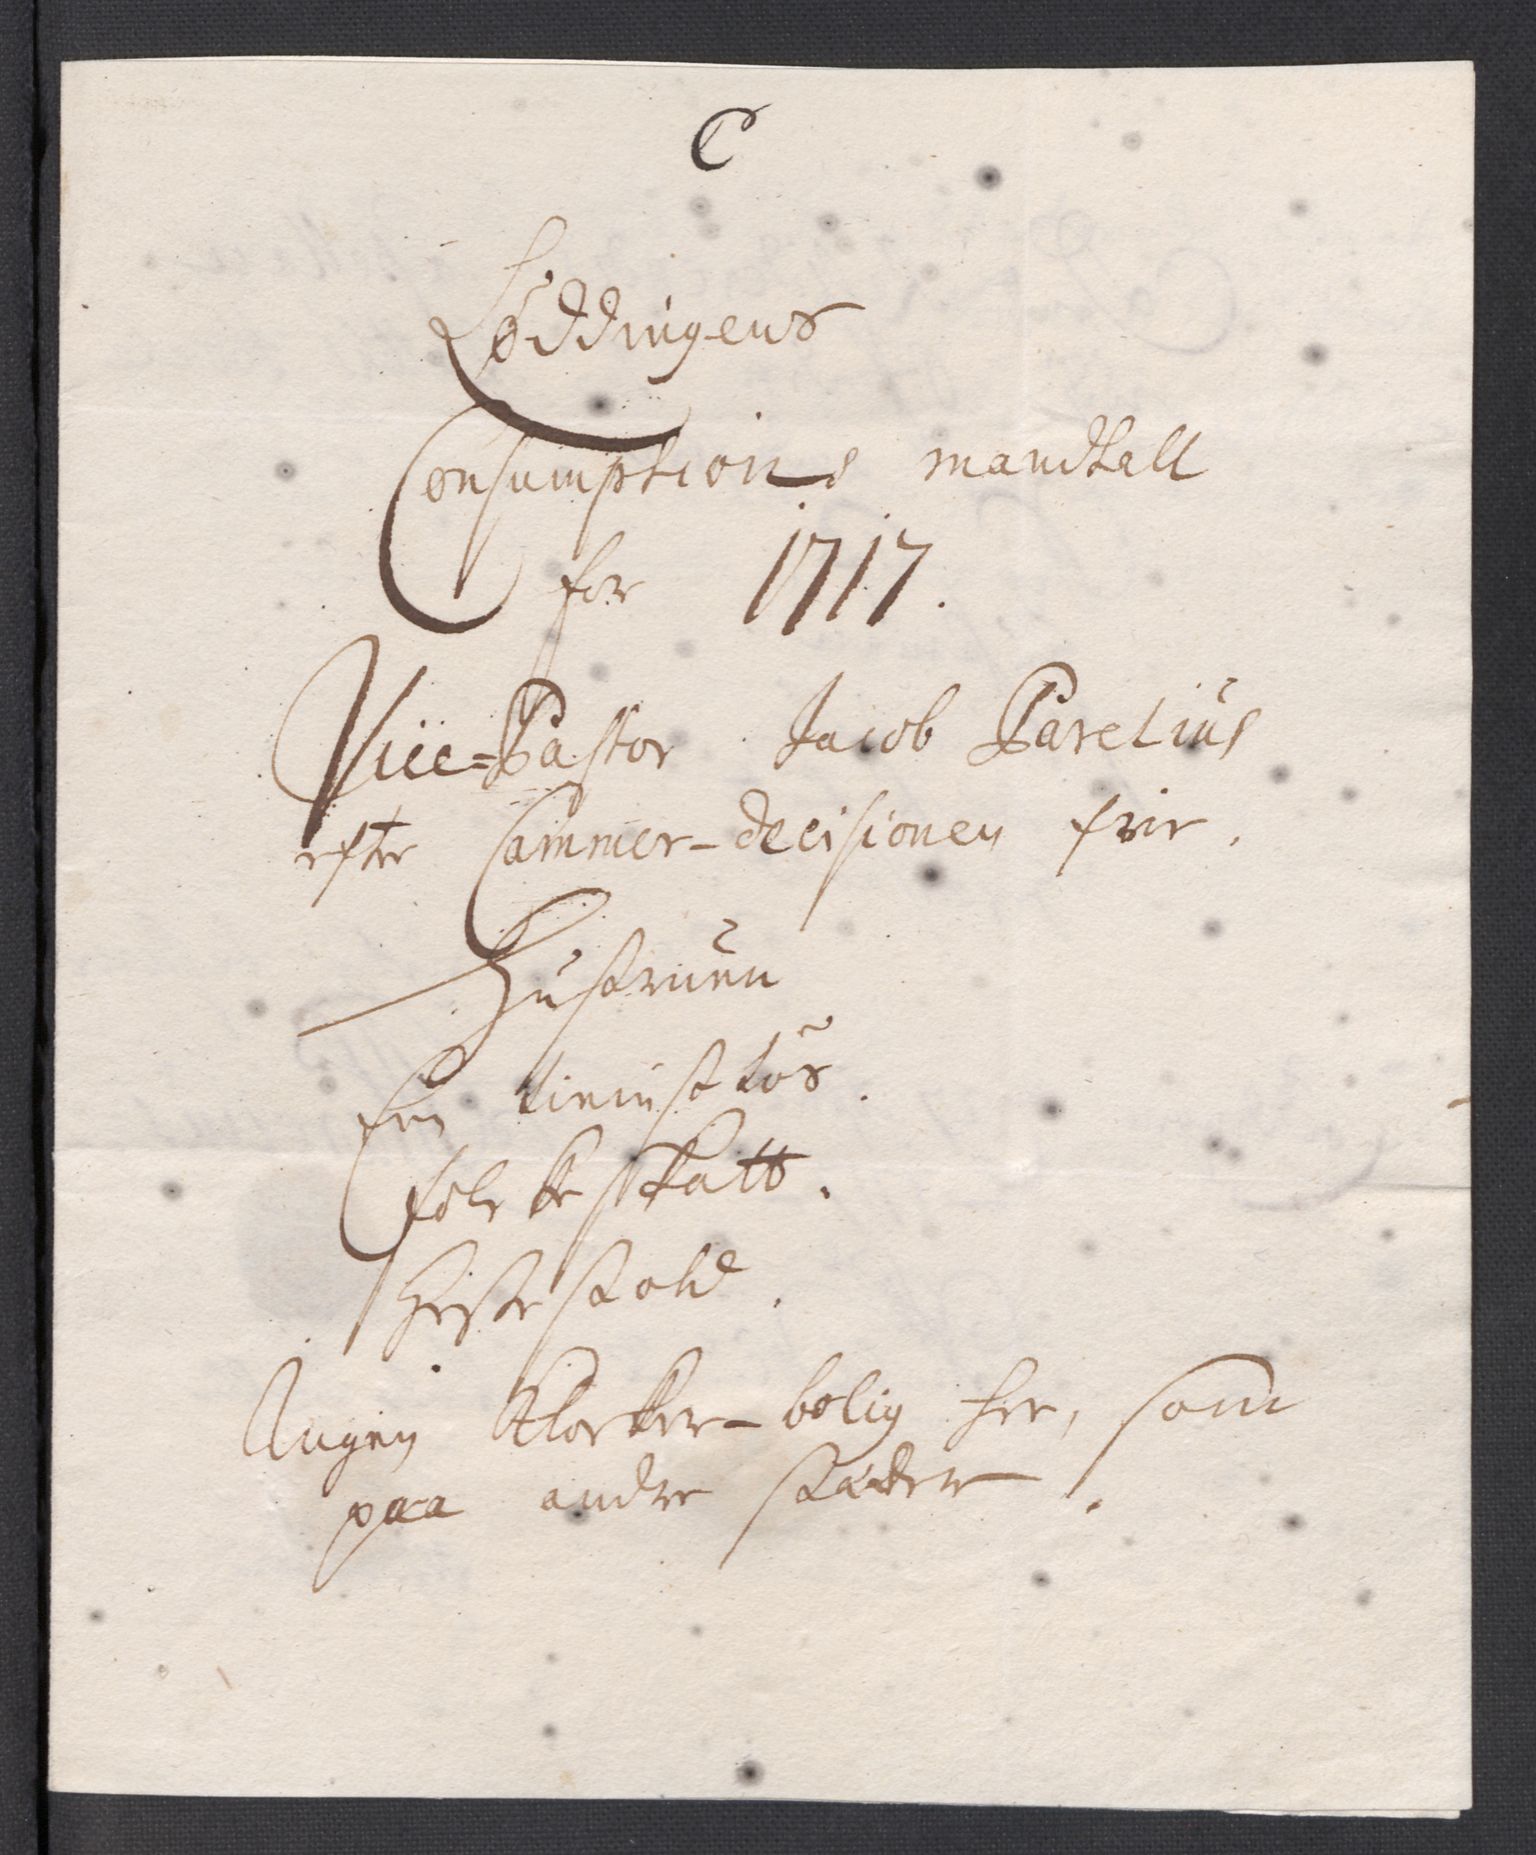 C
Løddingens
Consumptions mandtall
for 1717.
Vice=Pastor Jacob Parelius
efter Cammer-decisionen frie.
Hustruen
En tienist tøs.
Folckeskatt.
Hestestold.
Ingen Klocker-bolig her, som
paa andre stæder.